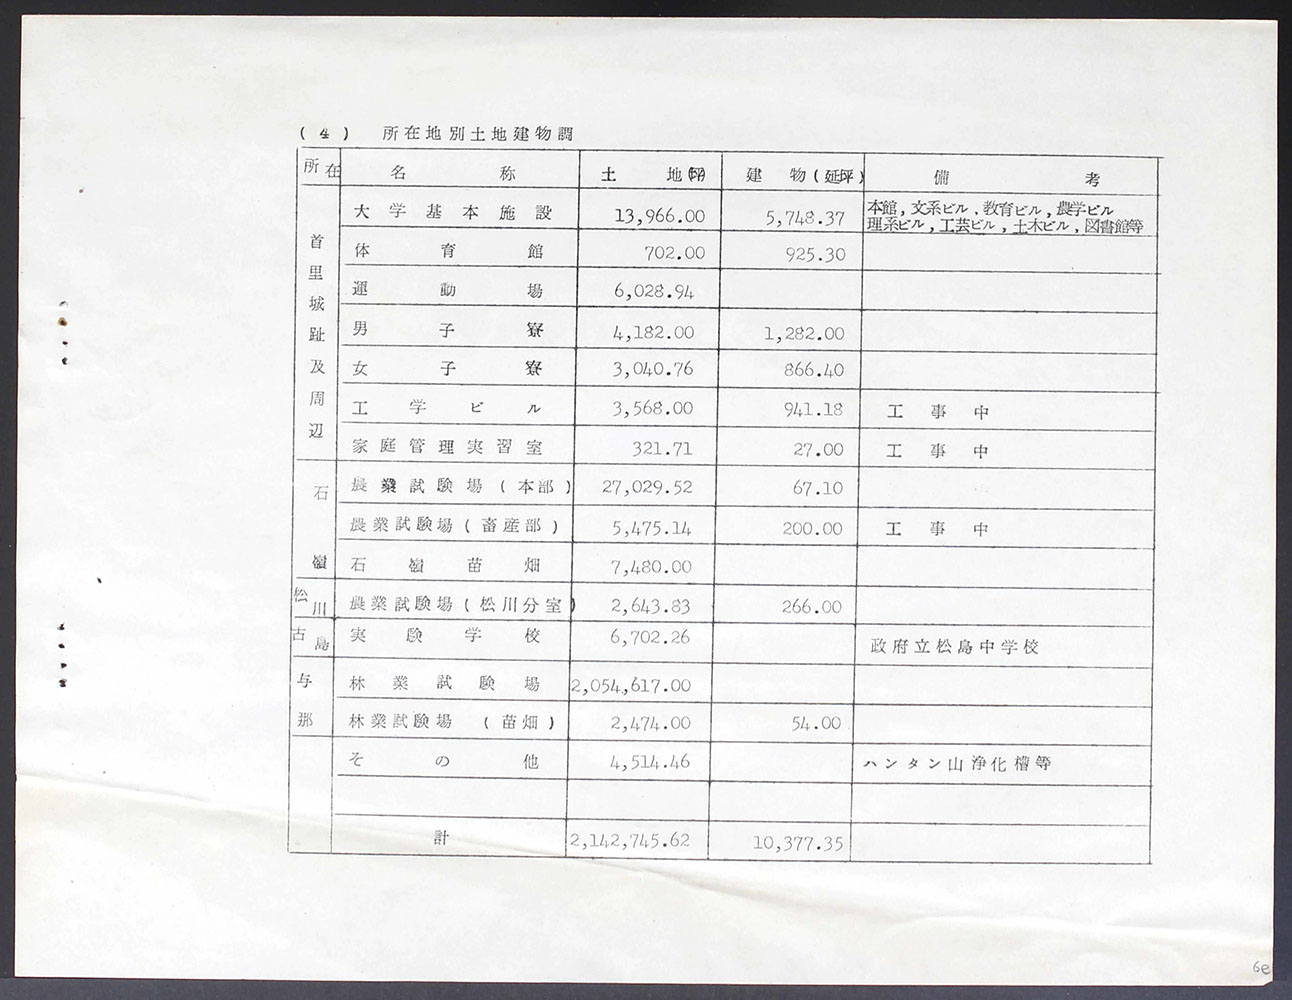 (4) 所在地別土地建物調
所在 名称 土地(坪) 建物(延坪) 備考
首里城趾及周辺 大学基本施設 13,966.00 5,748.37 本館,文系ビル,教育ビル,農学ビル
理系ビル,工芸ビル,土木ビル,図書館等
体育館 702.00 925.30
運動場 6,028.94
男子寮 4,182.00 1,282.00
女子寮 3,040.76 866.40
工学ビル 3,568.00 941.18 工事中
家庭管理実習室 321.71 27.00 工事中
石嶺 農業試験場(本部) 27,029.52 67.10
農業試験場(畜産部) 5,475.14 200.00 工事中
石嶺苗畑 7,480.00
松川 農業試験場(松川分室) 2,643.83 266.00
古島 実験学校 6,702.26 政府立松島中学校
与那 林業試験場 2,054,617.00
林業試験場(苗畑) 2,474.00 54.00
その他 4,514.46 ハンタン山浄化槽等
計 2,142,745.62 10,377.35
6e